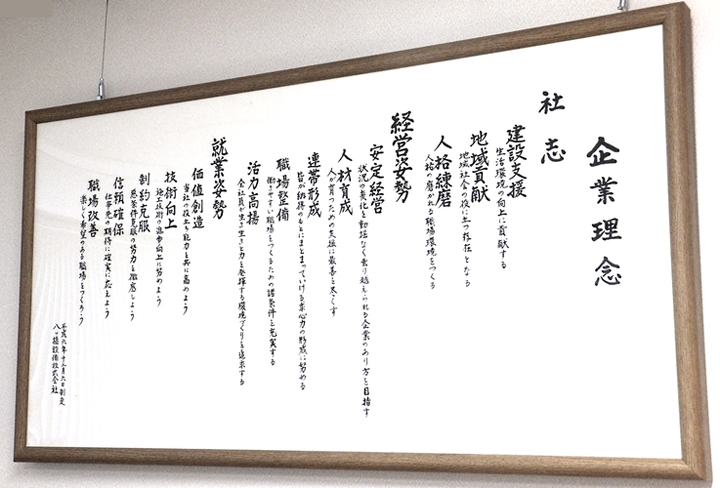 企業理念
社志
建設支援
生活環境の向上に貢献する
地域貢献
地域社会の役に立つ存在となる
人格練磨
人格の磨かれる職場環境をつくる
経営姿勢
安定経営
状況の変化を動揺なく乗り越えられる企業のあり方を目指す
人材育成
人が育つための支援に最善を尽くす
連帯形成
皆が納得のもとにまとまっていける求心力の形成に努める
職場整備
働きやすい職場をつくるための諸条件を充実する
活力高揚
全社員が生き生きと力を発揮する環境づくりを追求する
就業姿勢
価値創造
当社の役立ち能力を共に高めよう
技術向上
施工技術の進歩向上に努めよう
制約克服
悪条件克服の努力を徹底しよう
信頼確保
仕事先の期待に確実に応えよう
職場改善
楽しく希望のある職場をつくろう
平成六年十一月六日制定
設備株式会社